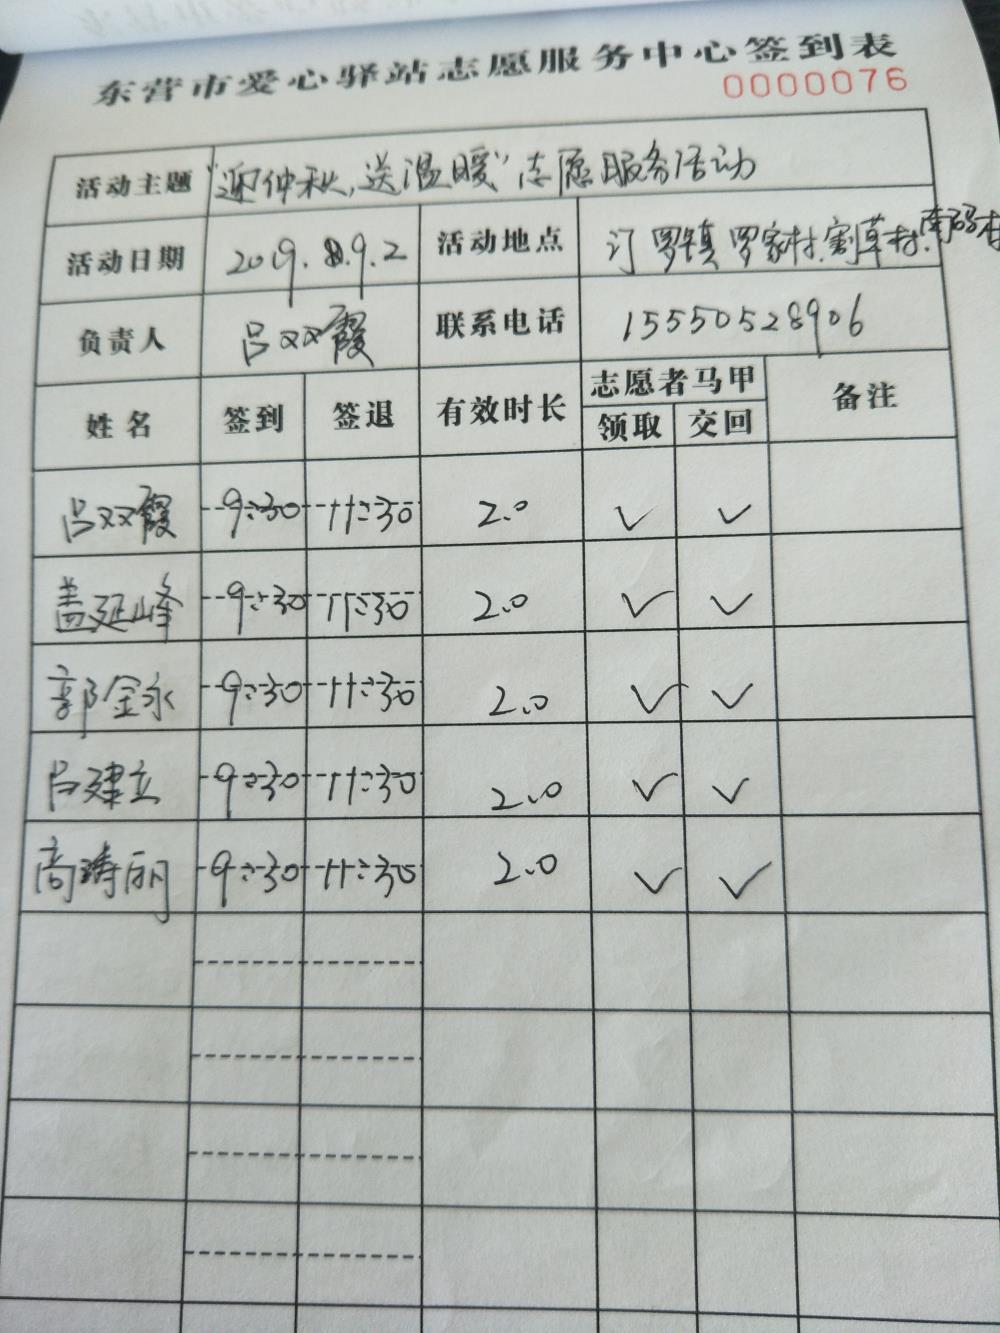 东营市爱心驿站志愿服务中心签到表
0000076
活动主题 “迎仲秋,送温暖”志愿服务活动
活动日期 2019.9.2 活动地点 汀罗镇罗家村.割草村.南码村
负责人 吕双霞 联系电话 15550528906
姓名 签到 签退 有效时长 志愿者马甲 备注
领取 交回
吕双霞 9:30 11:30 2.0 ✓ ✓
盖延峰 9:30 11:30 2.0 ✓ ✓
郭金永 9:30 11:30 2.0 ✓ ✓
吕建立 9:30 11:30 2.0 ✓ ✓
高 丽 9:30 11:30 2.0 ✓ ✓